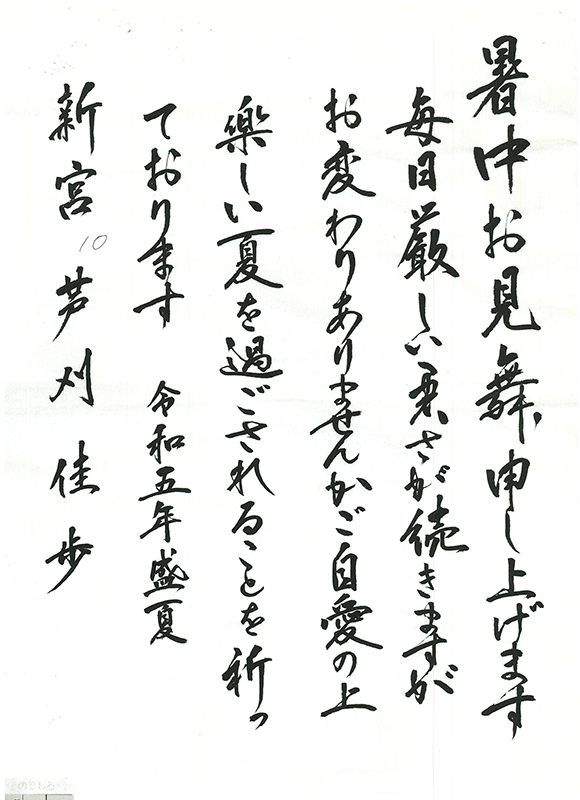 暑中お見舞申し上げます
毎日厳しい暑さが続きますが
お変わりありませんかご自愛の上
楽しい夏を過ごされることを祈っ
ております 令和五年盛夏
新宮 芦刈 佳歩
10